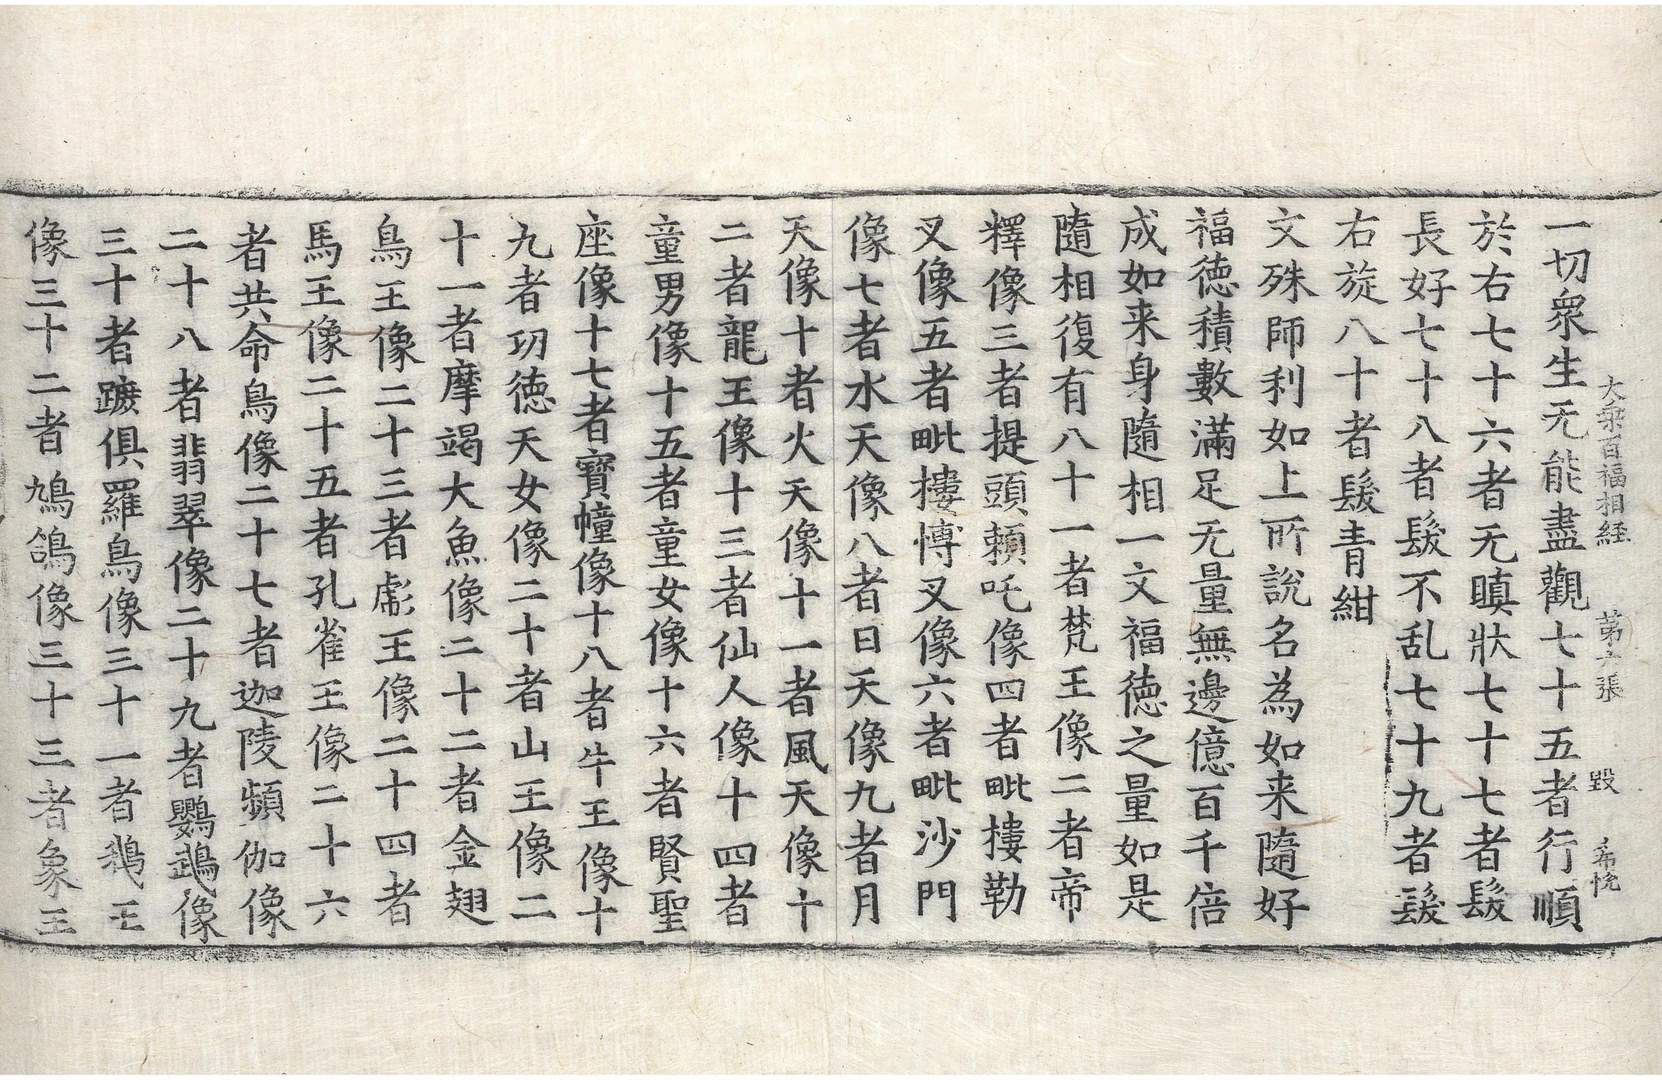 大乘百福相経　第六張　毀　希悅
一切衆生无能盡觀七十五者行順
於右七十六者无瞋狀七十七者髮
長好七十八者髮不乱七十九者髮
右旋八十者髮青紺
文殊師利如上所說名為如来隨好
福徳積數滿足无量無邊億百千倍
成如来身隨相一文福徳之量如是
隨相復有八十一者梵王像二者帝
釋像三者提頭頼吒像四者毗樓勒
叉像五者毗摟愽叉像六者毗沙門
像七者水天像八者日天像九者月
天像十者火天像十一者風天像十
二者龍王像十三者仙人像十四者
童男像十五者童女像十六者賢聖
座像十七者寳幢像十八者牛王像十
九者功徳天女像二十者山王像二
十一者摩竭大魚像二十二者金翅
鳥王像二十三者彪王像二十四者
馬王像二十五者孔雀王像二十六
者共命鳥像二十七者迦陵頻伽像
二十八者翡翠像二十九者鸚鵡像
三十者俱羅鳥像三十一者鵝王
像三十二者鳩鴿像三十三者象王